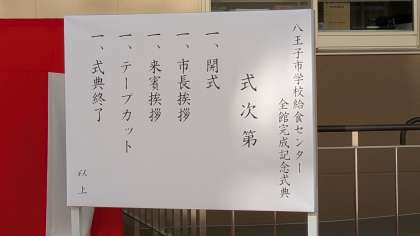 八王子市学校給食センター
全館完成記念式典
式次第
一、開式
一、市長挨拶
一、来賓挨拶
一、テープカット
一、式典終了
以上